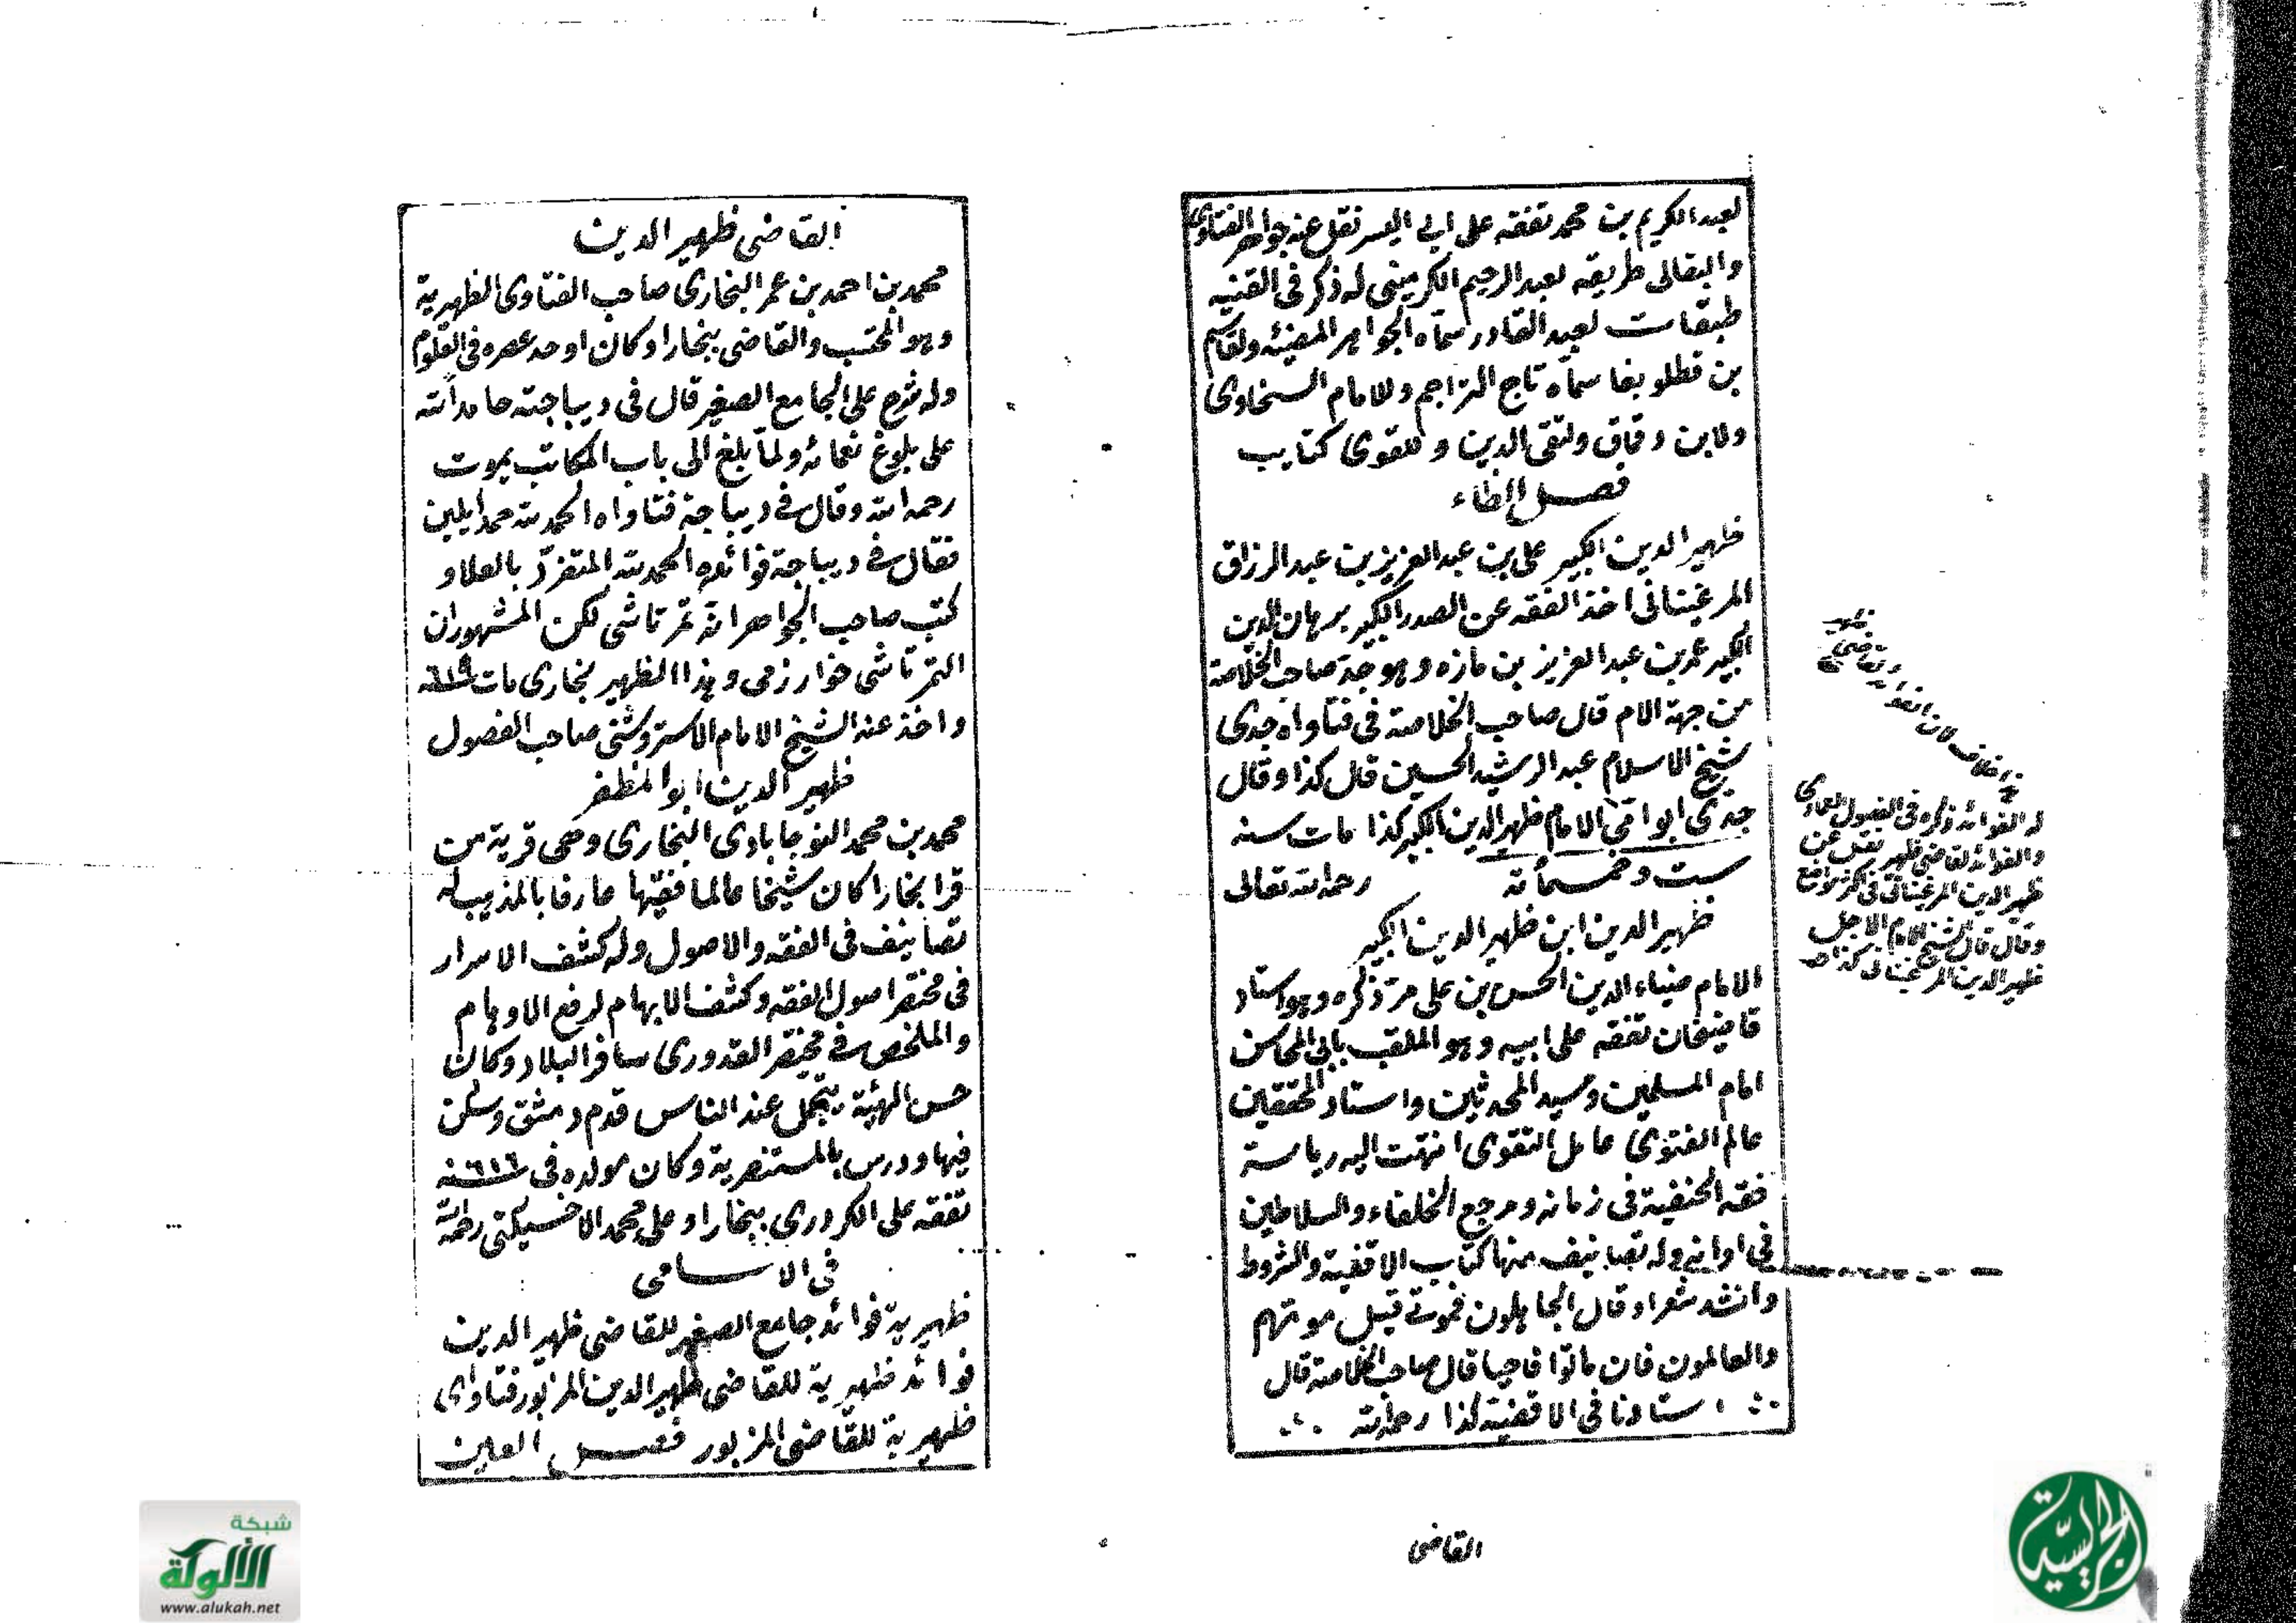 لعبد الكريم بن محمد تفقه على ابي اليسر نقل عنه جواهر الفتاوى
والبقالى طريقه لعبد الرحيم الكرمينى له ذكر فى القنيه
طبقات لعبد القادر سماه الجواهر المضيئه ولقاسم
بن قطلوبغا سماه تاج التراجم وللامام السنحاوى
ولابن دقاق ولتقى الدين و للقوى كتايب
فصل الظاء
ظهير الدين الكبير على بن عبد العزيز بن عبد الرزاق
المرغينانى اخذ الفقه عن الصدر الكبير برهان الدين
الكبير عمر بن عبد العزيز بن مازه وهو جد صاحب الخلاصة
من جهة الام قال صاحب الخلاصة فى فتاواه جدى
شيخ الاسلام عبد الرشيد الحسين قال كذا وقال
جدى ابو امى الامام ظهير الدين الكبير كذا مات سنه
ست وخمسمأته رحمه الله تعالى
ظهير الدين ابن ظهير الدين الكبير
الامام ضياء الدين الحسن بن على مر ذكره وهو استاد
قاضيخان تفقه على ابيه وهو الملقب بابى المحاسن
امام المسلمين وسيد المحدثين واستاد المحققين
عالم الفتوى عامل التقوى انتهت اليه رياسة
فقه الحنفية فى زمانه ومرجع الخلفاء والسلاطين
فى اوانه وله تصانيف منها كتاب الاقضية والشروط
وانشد شعرا وقال الجاهلون فموتى قبل موتهم
والعالمون فان ماتوا فاحيا قال صاحب الخلاصة قال
استادنا فى الاقضية كذا رحمه الله
له الفوائد ذكره فى الفصول العمادى
والفوائد لقاضى ظهير نقل عن
ظهير الدين المرغينانى فى كثر مواضع
وقال قال الشيخ الامام الاجل
ظهير الدين المرغينانى كذا
القاضى
القاضى ظهير الدين
محمد بن احمد بن عمر البخارى صاحب الفتاوى الظهيرية
وهو المحتسب والقاضى ببخارا وكان اوحد عصره فى العلوم
وله شرح على الجامع الصغير قال فى ديباجته حامدا لله
على بلوغ نعمائه ولما بلغ الى باب المكاتب يموت
رحمه الله وقال فى ديباجة فتاواه الحمد لله حمدا يلين
فقال فى ديباجة فوائده الحمد لله المتفرد بالعلاو
كتب صاحب الجواهر انه تمرتاشى لكن المشهوران
التمرتاشى خوارزمى وهذا الظهير بخارى مات ٦١٩ سنه
واخذ عنه الشيخ الامام الاستروشنى صاحب الفصول
ظهير الدين ابو المظفر
محمد بن محمد النوجابادى البخارى وهى قرية من
قرا بخارا كان شيخا عالما فقيها عارفا بالمذهب له
تصانيف فى الفقه والاصول وله كشف الاسرار
فى مختصر اصول الفقه وكشف الابهام لرفع الاوهام
والملخص فى مختصر القدورى سافر البلاد وكان
حسن الهيئة يتجمل عند الناس قدم دمشق وسكن
فيها ودرس بالمستنصرية وكان مولده فى ٦١٦ سنه
تفقه على الكردرى ببخارا وعلى محمد الاخسيكتى رحمه الله
فى الاسامى
ظهيرية فوائد جامع الصغير للقاضى ظهير الدين
فوائد ظهيرية للقاضى ظهير الدين المزبور فتاواى
ظهيرية للقاضى المزبور فصل العين
شبكة
الألوكة
www.alukah.net